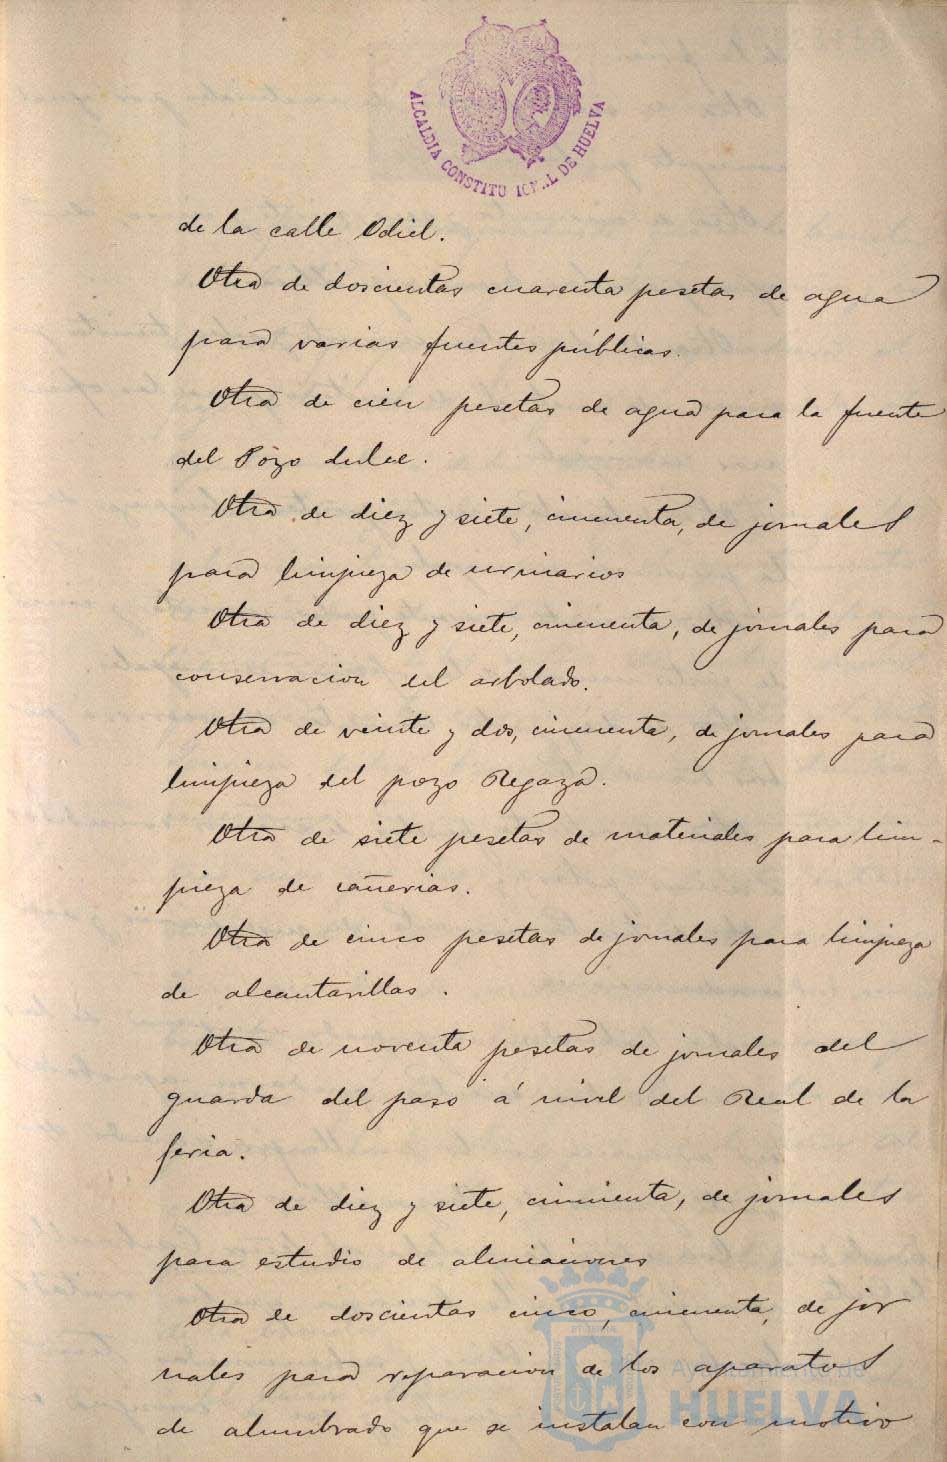 ALCALDIA CONSTITUCIONAL DE HUELVA
de la calle Odiel.
Otra de doscientas cuarenta pesetas de agua
para varias fuentes públicas.
Otra de cien pesetas de agua para la fuente
del Pozo dulce.
Otra de diez y siete, cincuenta, de jornales
para limpieza de urinarios
Otra de diez y siete, cincuenta, de jornales para
conservacion del arbolado.
Otra de veinte y dos, cincuenta, de jornales para
limpieza del pozo Regaza.
Otra de siete pesetas de materiales para lim-
pieza de cañerias.
Otra de cinco pesetas de jornales para limpieza
de alcantarillas.
Otra de noventa pesetas de jornales del
guarda del paso á nivel del Real de la
feria.
Otra de diez y siete, cincuenta, de jornales
para estudio de alineaciones
Otra de doscientas cinco, cincuenta, de jor
nales para reparacion de los aparatos
de alumbrado que se instalan con motivo
Ayuntamiento de
HUELVA